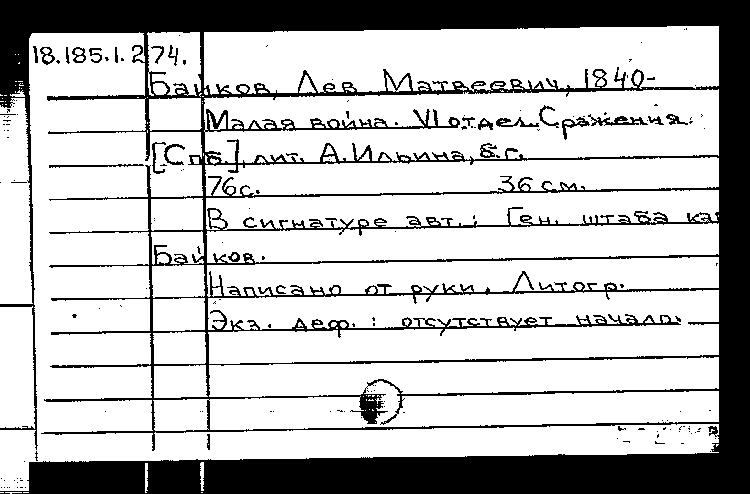 18.185.1.274.
Байков, Лев Матвеевич, 1840-
Малая война. VI отдел. Сражения.
[Спб.], лит. А. Ильина, б.г.
76с. 36 см.
В сигнатуре авт.: Ген. штаба ка
Байков.
Написано от руки. Литогр.
Экз. деф.: отсутствует начало.